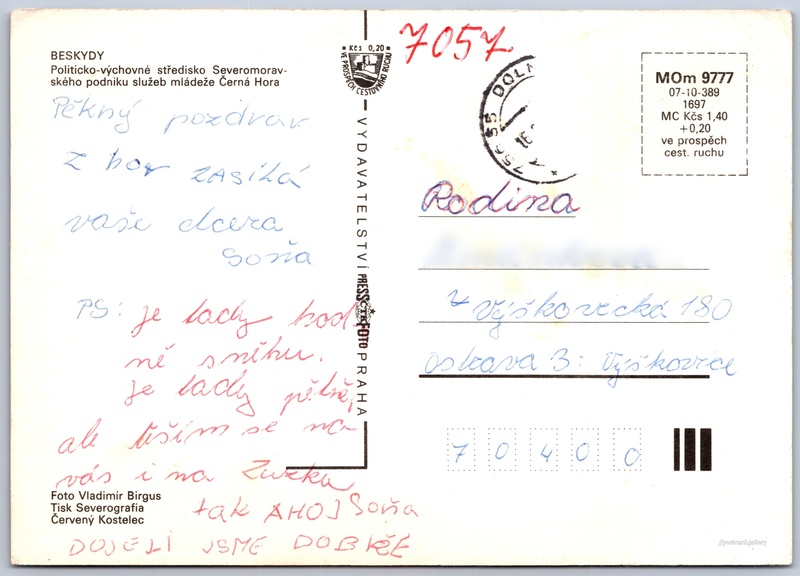 BESKYDY
Politicko-výchovné středisko Severomorav-
ského podniku služeb mládeže Černá Hora
Pěkný pozdrav
z hor ZASÍLÁ
vaše dcera
Soňa
PS: je tady hod
ně sněhu.
je tady pěkně,
ale těším se na
vás i na Zuzka
tak AHOJ Soňa
DOJELI JSME DOBŘE
Foto Vladimír Birgus
Tisk Severografia
Červený Kostelec
Kčs 0,20
VE PROSPĚCH CESTOVNÍHO RUCHU
VYDAVATELSTVÍ PRESSFOTO PRAHA
ČTK
7057
756 55 DOLN
16.
MOm 9777
07-10-389
1697
MC Kčs 1,40
+0,20
ve prospěch
cest. ruchu
Rodina
Výškovecká 180
Ostrava 3: Výškovice
70400